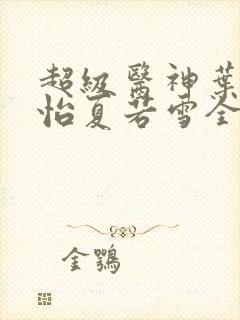 超級醫神葉
怡夏若雪全
金鶚